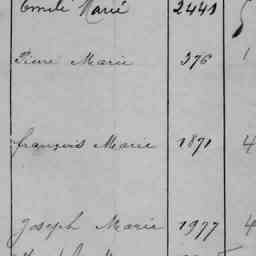 Emile Marie 2441
Pierre Marie 376 1
françois Marie 1871 4
Joseph Marie 1977 4